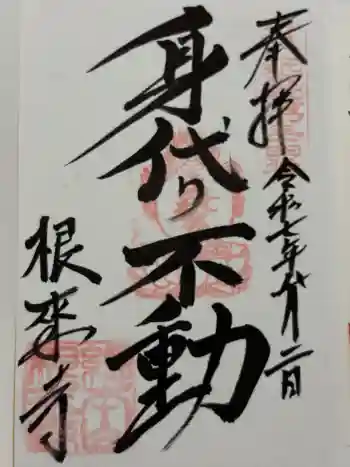 奉拝 令和七年八月二日
身代り不動
根来寺